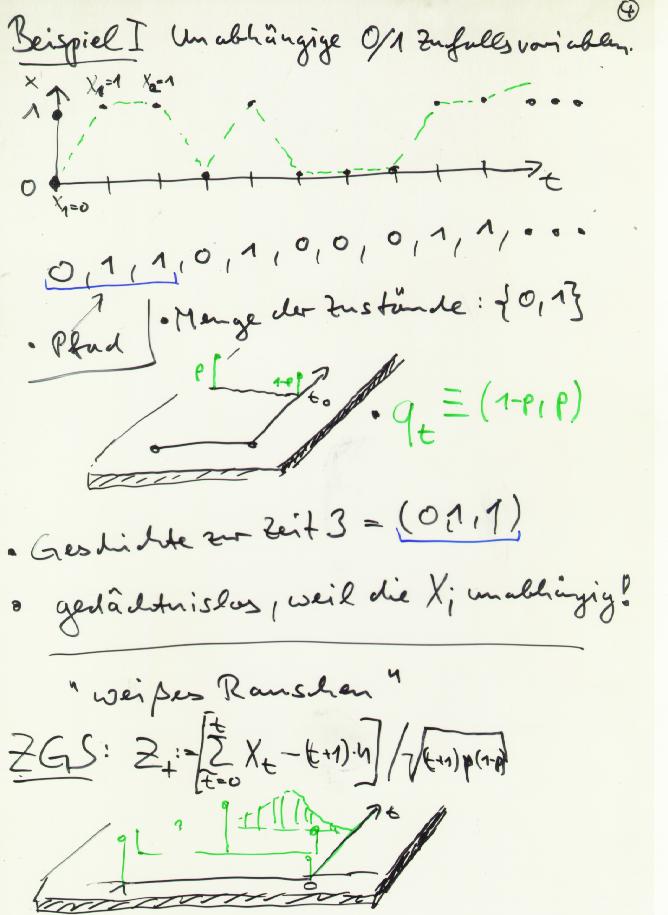 4
Beispiel I Unabhängige 0/1 Zufallsvariablen.
x X₁=1 X₂=1
1
0 t
X₁=0
0, 1, 1, 0, 1, 0, 0, 0, 1, 1, ...
• Pfad • Menge der Zustände: {0,1}
p 1-p
t₀ • q_t ≡ (1-p, p)
• Geschichte zur Zeit 3 = (0,1,1)
• gedächtnislos, weil die X_i unabhängig!
"weißes Rauschen"
ZGS: Z_t := [∑_{t=0}^{t} X_t - (t+1)·μ] / √((t+1)p(1-p))
t
1 0